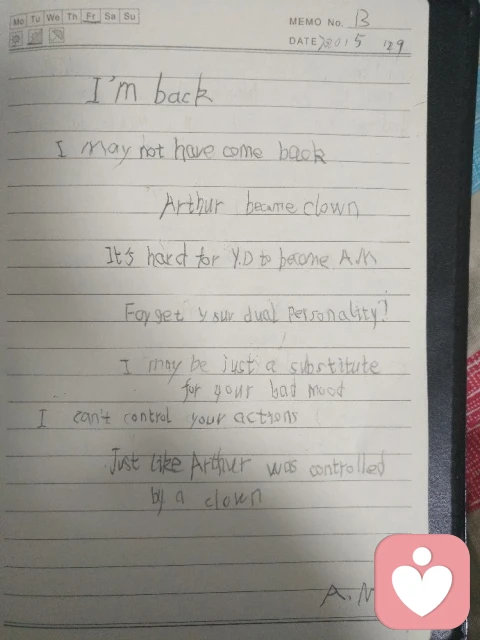 Mo Tu We Th Fr Sa Su
MEMO No. B
DATE
I'm back
I may not have come back
Arthur became clown
It's hard for Y.D to become A.M
Forget your dual personality?
I may be just a substitute
for your bad mood
I can't control your actions
Just like Arthur was controlled
by a clown
A.M